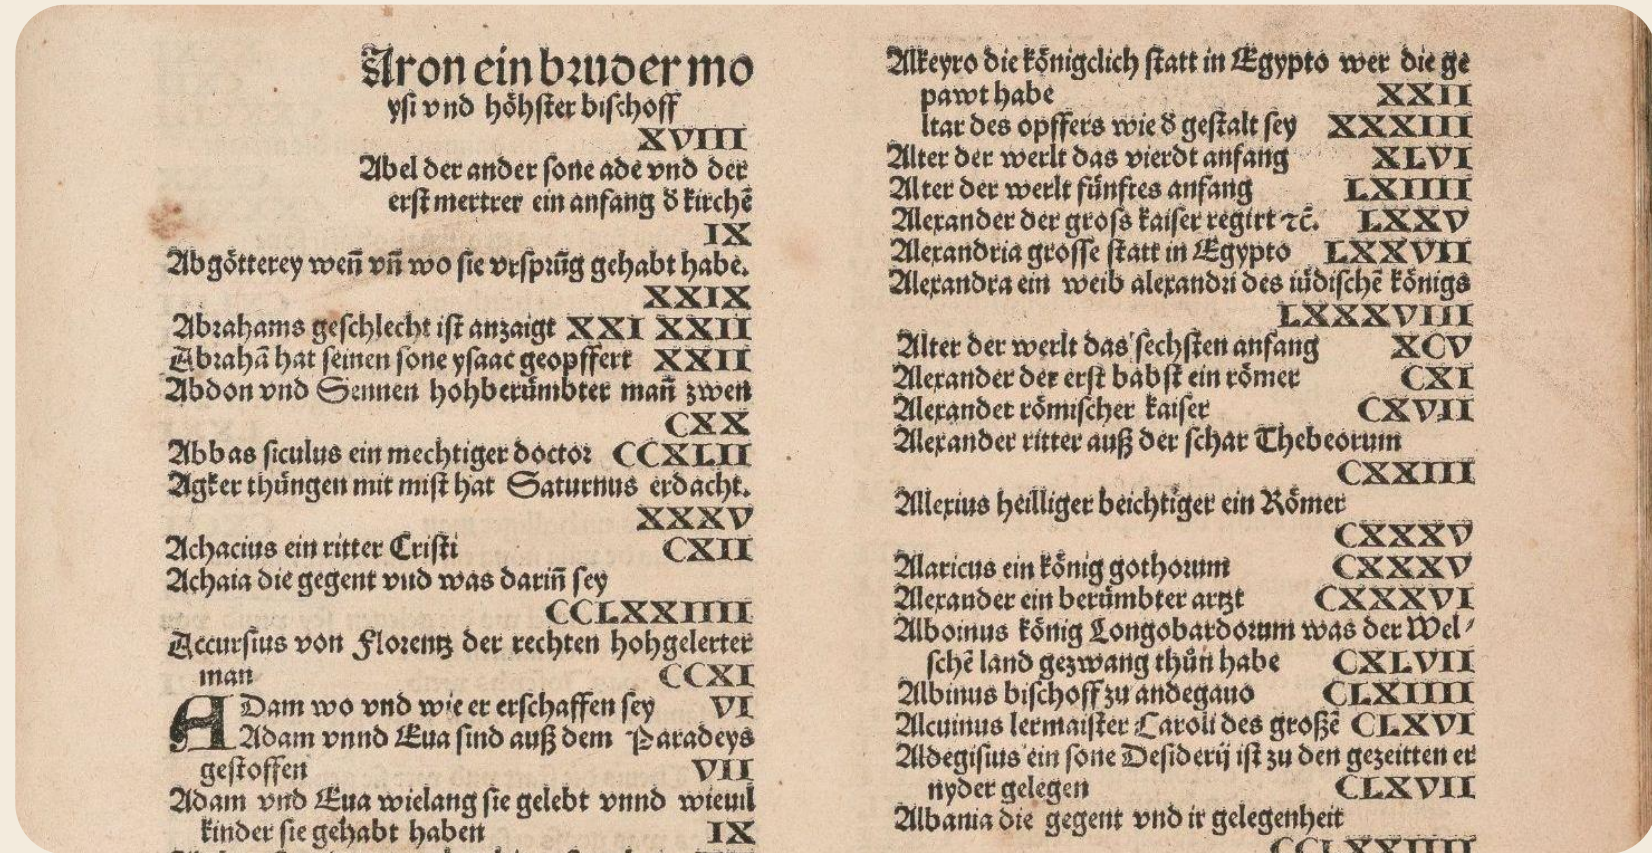 Aron ein bruder mo
ysi vnd höhster bischoff
XVIII
Abel der ander sone ade vnd der
erst mertrer ein anfang d̕ kirchē
IX
Abgötterey weñ vñ wo sie vrsprūg gehabt habe.
XXIX
Abrahams geschlecht ist anzaigt XXI XXII
Abrahā hat seinen sone ysaac geopffert XXII
Abdon vnd Sennen hohberümbter mañ zwen
CXX
Abbas siculus ein mechtiger doctor CCXLII
Agker thüngen mit mist hat Saturnus erdacht.
XXXV
Achacius ein ritter Cristi CXII
Achaia die gegent vnd was dariñ sey
CCLXXIIII
Accursius von Florentz der rechten hohgelerter
man CCXI
ADam wo vnd wie er erschaffen sey VI
Adam vnnd Eua sind auß dem Paradeys
gestossen VII
Adam vnd Eua wielang sie gelebt vnnd wieuil
kinder sie gehabt haben IX
Alkeyro die königclich statt in Egypto wer die ge
pawt habe XXII
ltar des opffers wie d̕ gestalt sey XXXIII
Alter der werlt das vierdt anfang XLVI
Alter der werlt fünftes anfang LXIIII
Alexander der gross kaiser regirt ⁊c̄. LXXV
Alexandria grosse statt in Egypto LXXVII
Alexandra ein weib alexandri des iüdischē königs
LXXXVIII
Alter der werlt das sechsten anfang XCV
Alexander der erst babst ein römer CXI
Alexander römischer kaiser CXVII
Alexander ritter auß der schar Thebeorum
CXXIII
Allexius heilliger beichtiger ein Römer
CXXXV
Alaricus ein könig gothorum CXXXV
Alexander ein berümbter artzt CXXXVI
Alboinus könig Longobardorum was der Wel⸗
schē land gezwang thün habe CXLVII
Albinus bischoff zu andegauo CLXIIII
Alcuinus lermaister Caroli des großē CLXVI
Aldegisius ein sone Desiderij ist zu den gezeitten er
nyder gelegen CLXVII
Albania die gegent vnd ir gelegenheit
CCLXXIIII